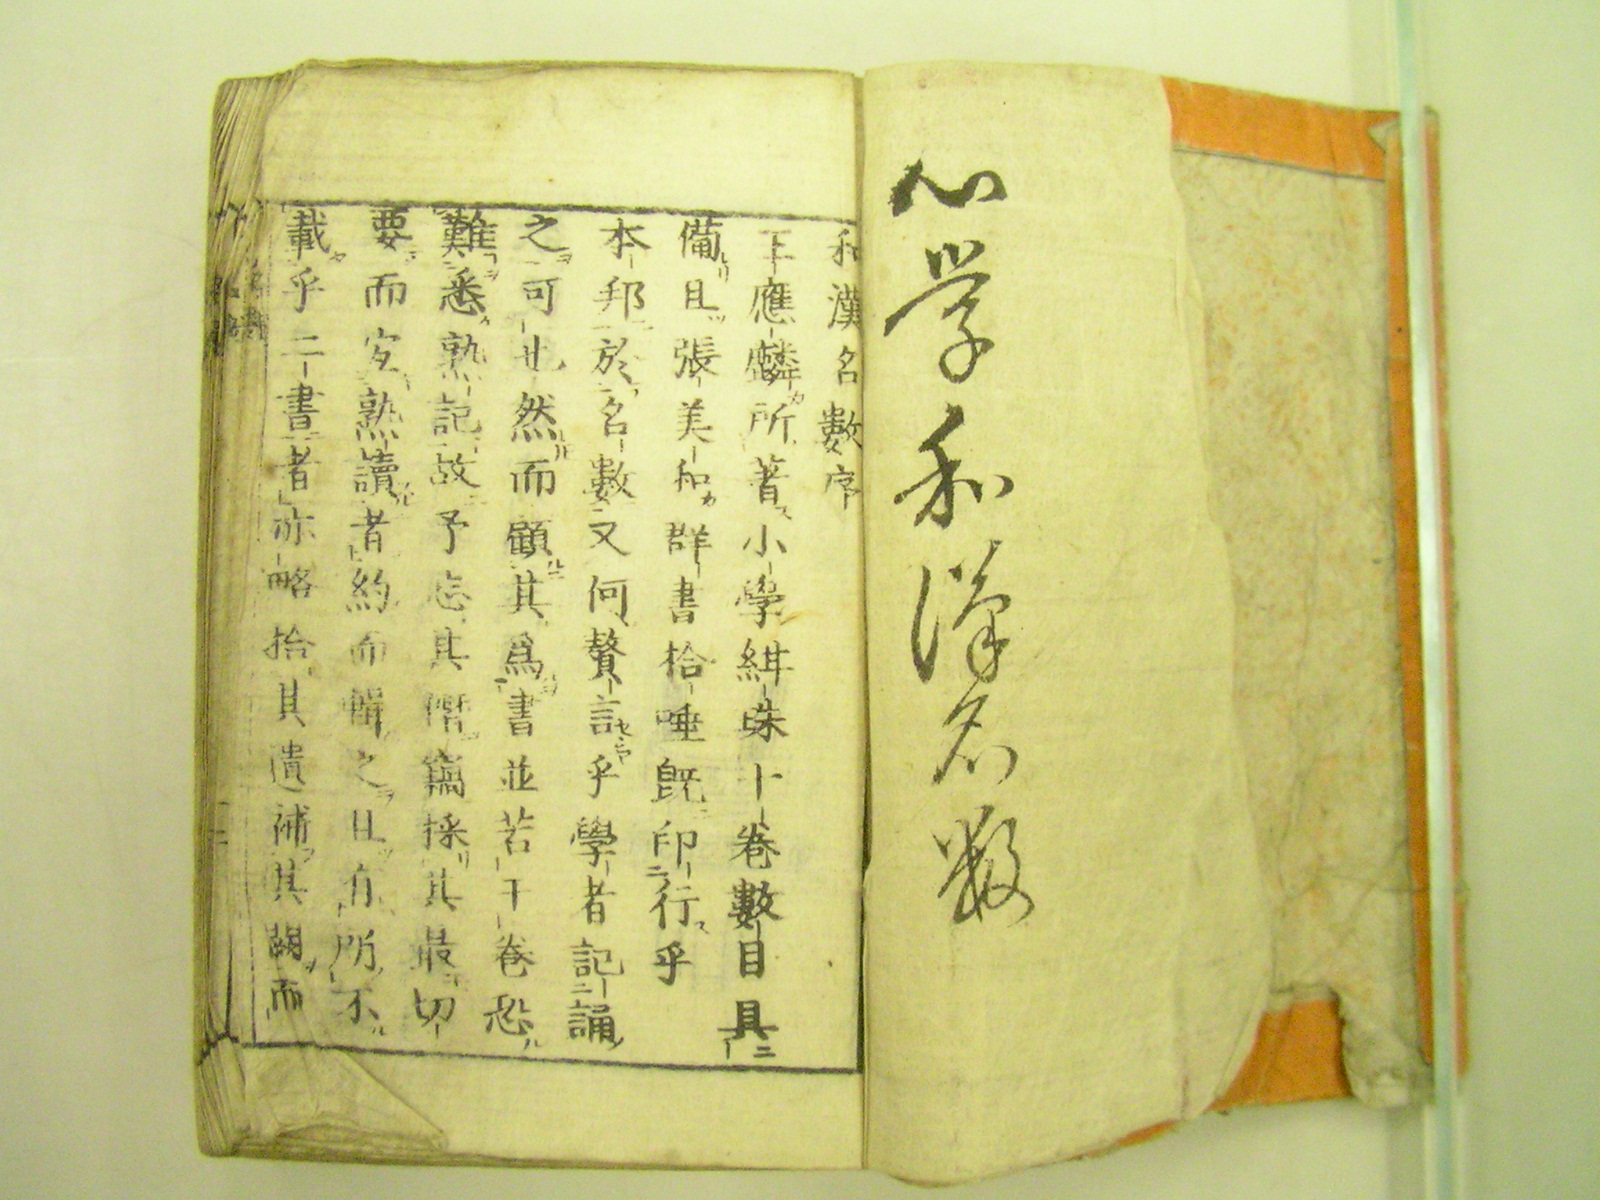 心学和漢名数
和漢名數序
王應麟所著小學紺珠十卷數目具
備且張美和群書拾唾既印行乎
本邦於名數又何贅言乎學者記誦
之可也然而顧其爲書並若干卷恐
難悉熟記故予忘其僭竊採其最切
要而宜熟讀者約而輯之且有所不
載乎二書者亦略拾其遺補其闕而